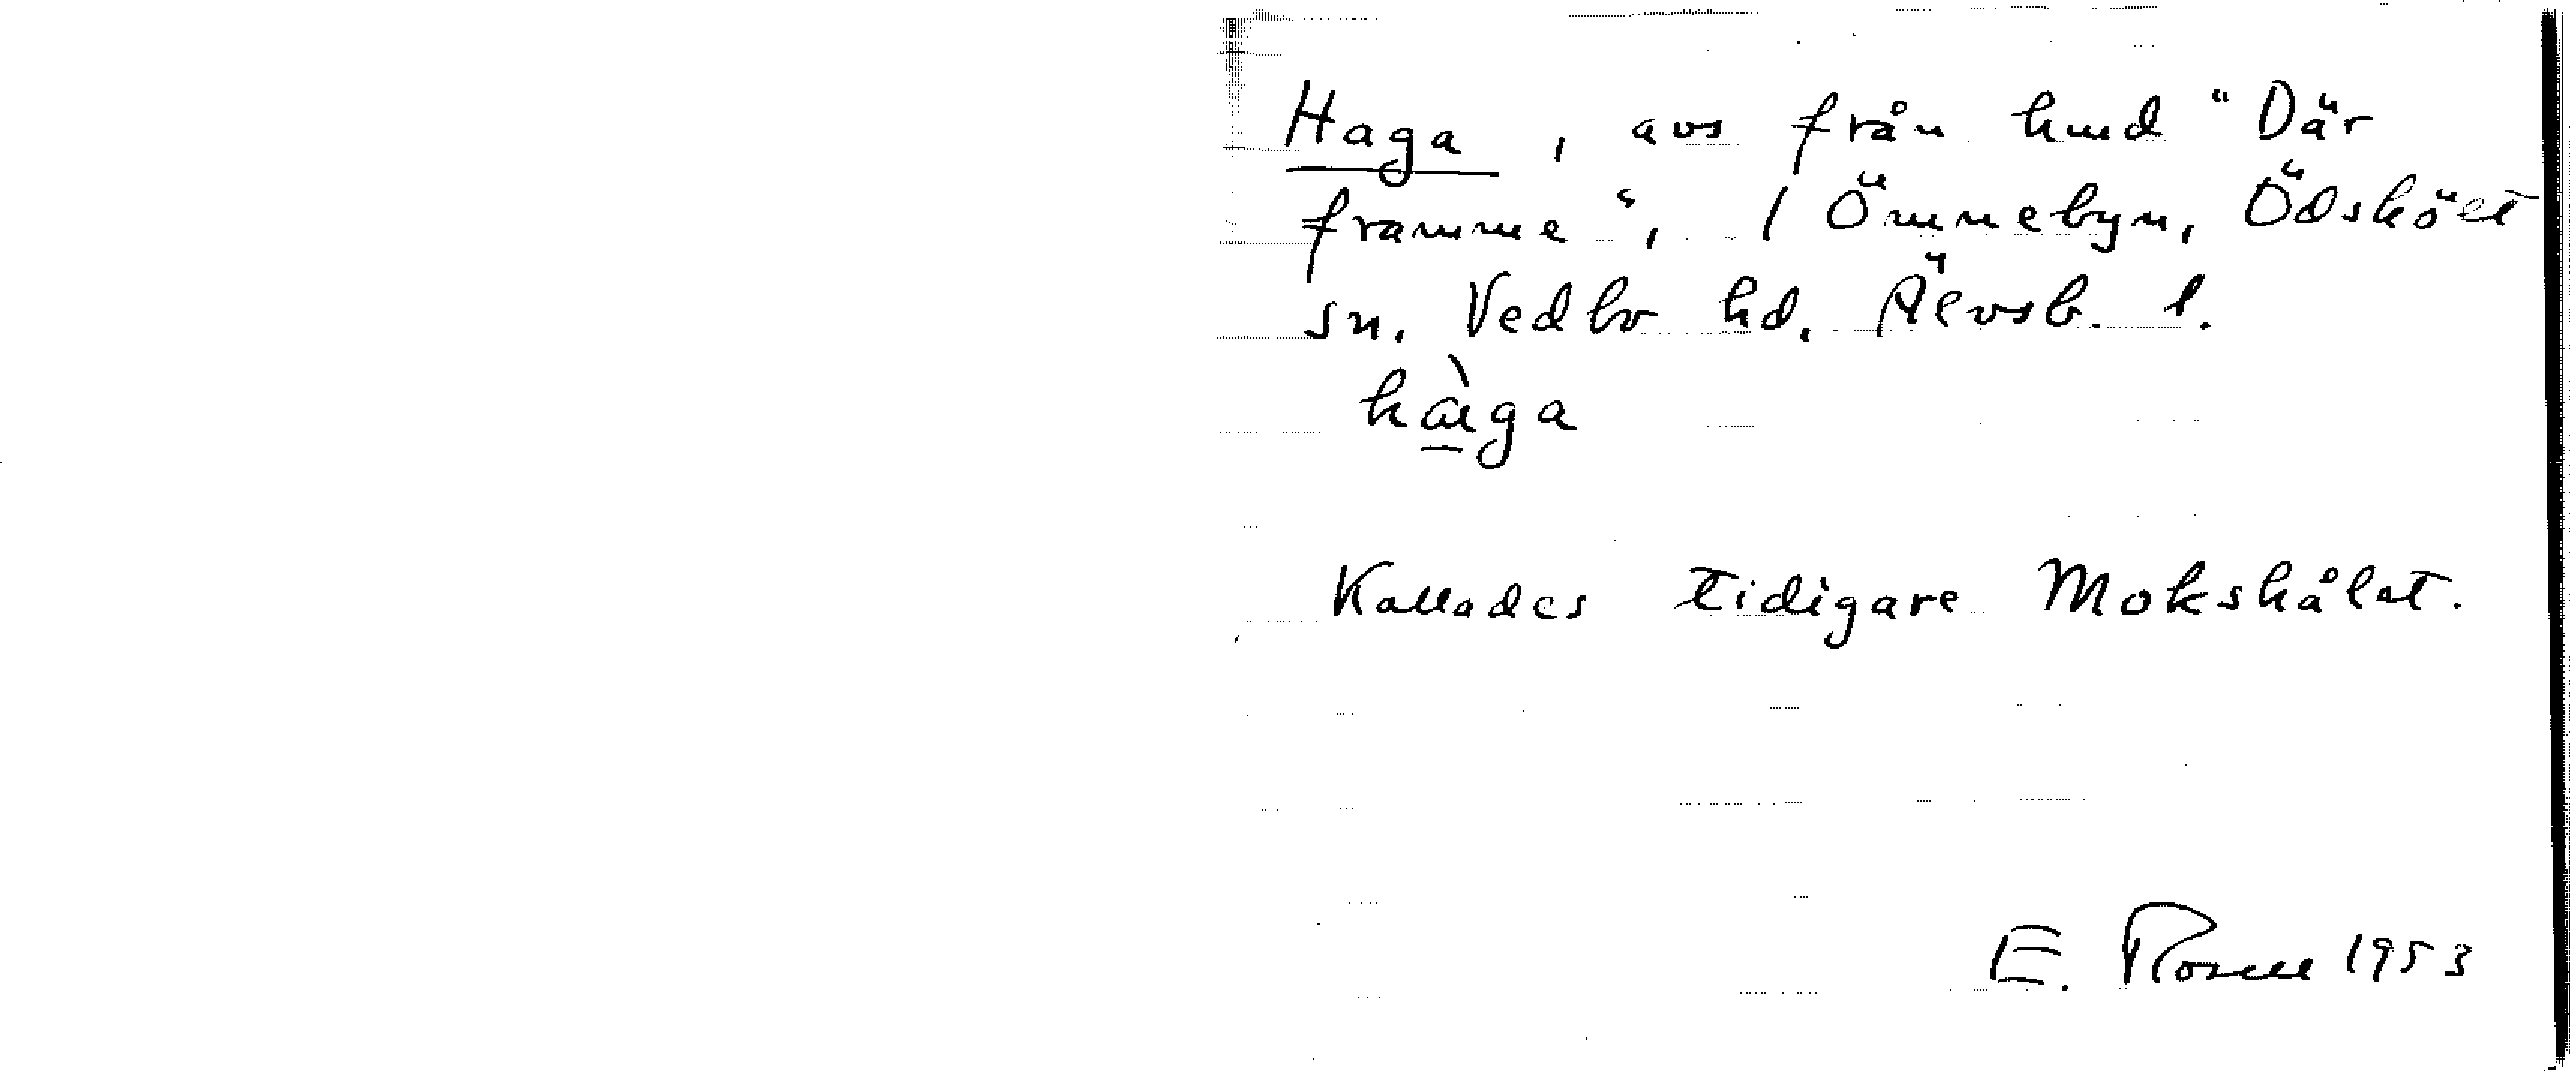 Haga, avs från hmd "Där
framme", i Ömnebyn, Ödsköet
sn. Vedbo hd. Älvsb. l.
hàga
Kallades tidigare Mokshålet.
E. 1953